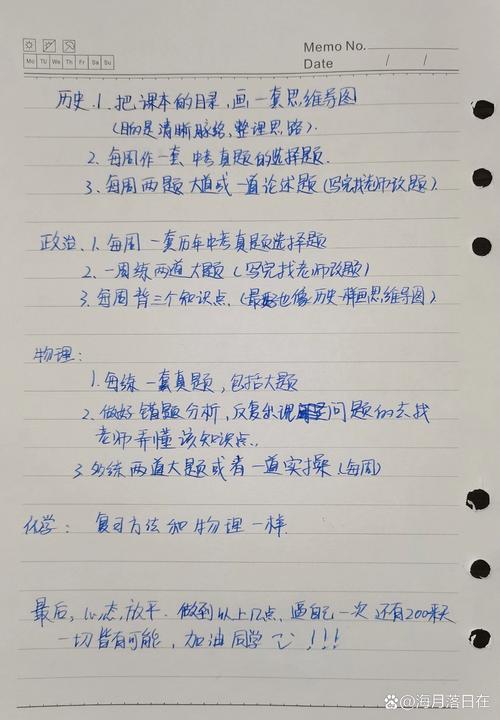 Memo No.
Mo Tu We Th Fr Sa Su
Date / /
历史.1.把课本的目录,画一套思维导图
(目的是清晰脉络,整理思路).
2.每周作一套中考真题的选择题.
3.每周两题大道或一道论述题(写完找老师改题)
政治.1.每周一套历年中考真题选择题
2.一周练两道大题(写完找老师改题)
3.每周背三个知识点.(最好也像历史一样画思维导图)
物理:
1.每练一套真题,包括大题
2.做好错题分析,反复出现问题的去找
老师弄懂该知识点.
3.练两道大题或者一道实操(每周)
化学: 复习方法和物理一样.
最后,心态放平.做到以上几点.逼自己一次还有200来天
一切皆有可能,加油同学!!!
@海月落日在